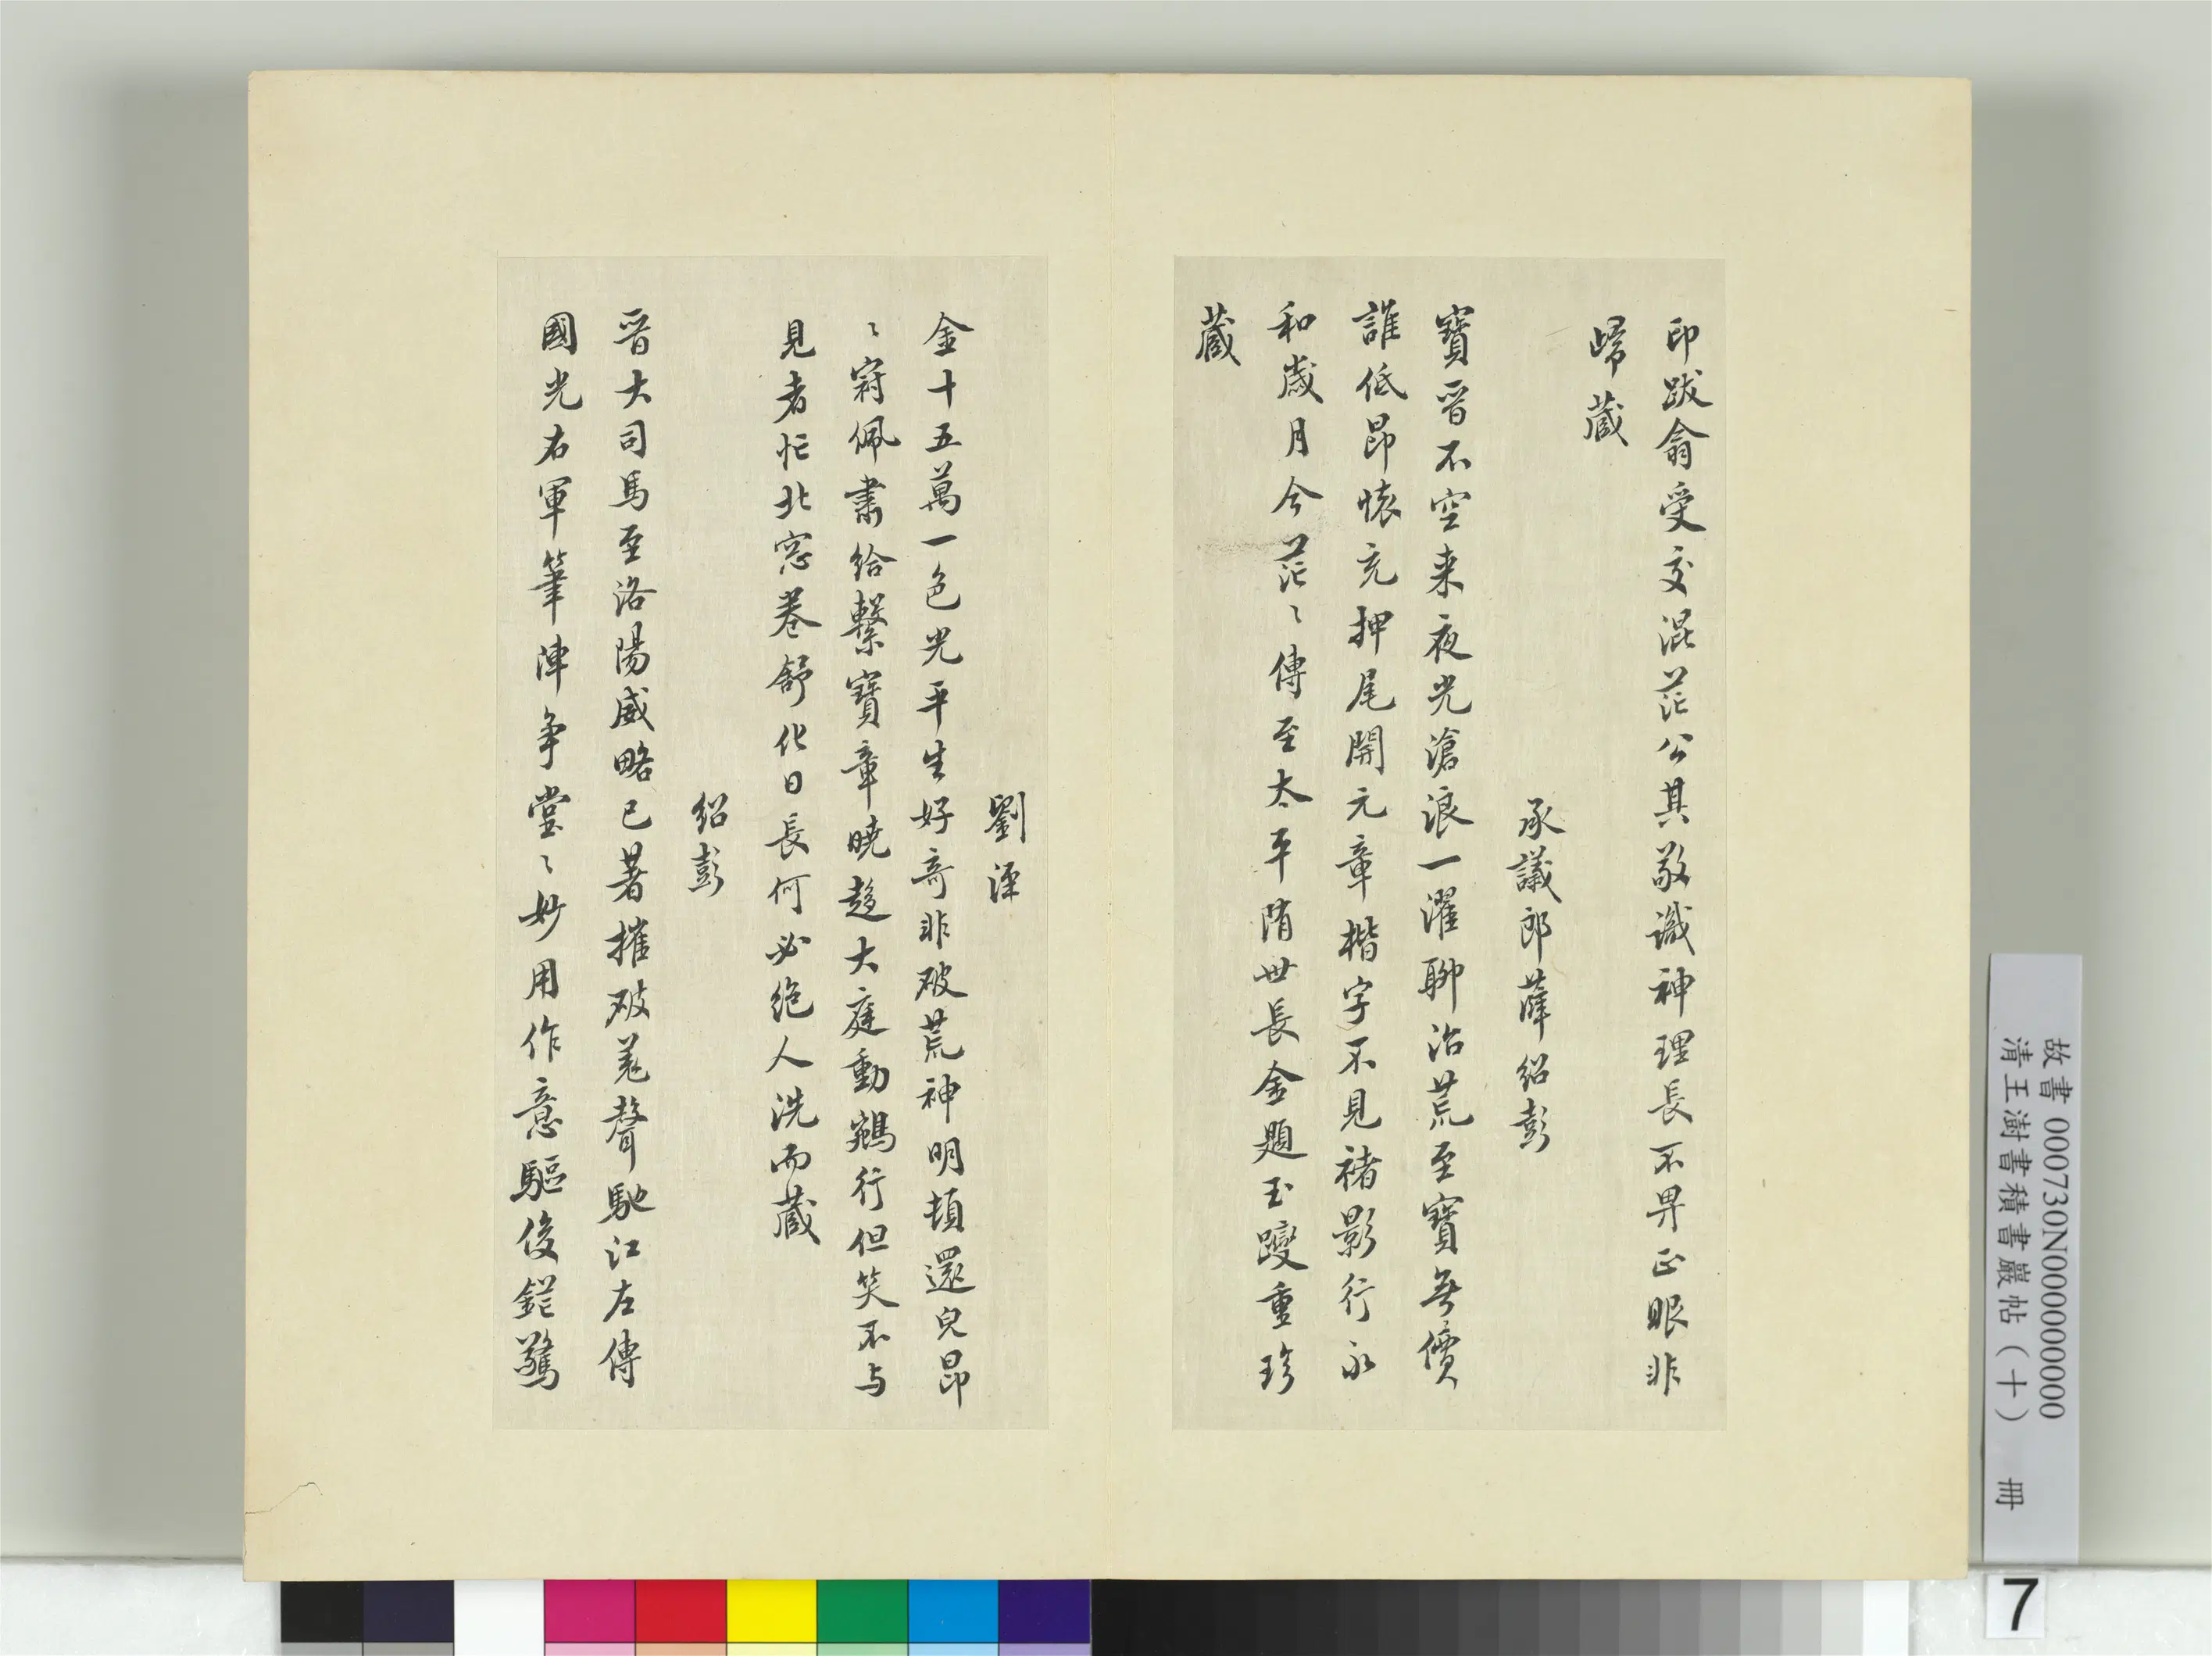 印跋翕受交混茫公其敬識神理長不畀正眼非
歸藏
承議郎薛紹彭
寶晉不空来夜光滄浪一濯聊治荒至寶無價
誰低昂懐充押尾開元章楷字不見褚影行永
和歲月今茫〻傳至太平隋世長金題玉躞重珍
藏
劉涇
金十五萬一色光平生好奇非破荒神明頓還皃昂
〻冠佩肅給繫寶章曉趍大庭動鵷行但笑不与
見者忙北窓卷舒化日長何必絶人洗而藏
紹彭
晉大司馬至洛陽威略已著摧破羌聲馳江左傳
國光右軍筆陣争堂〻妙用作意驅俊鋩驚
故書 000730N000000000
清王澍書積書巖帖（十） 冊
7